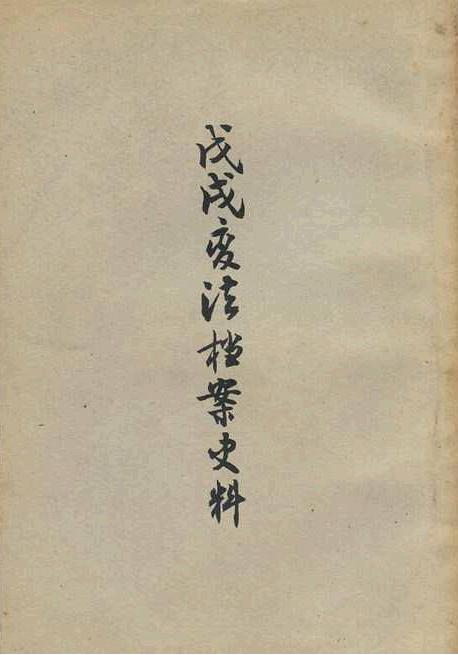 戊戌变法档案史料